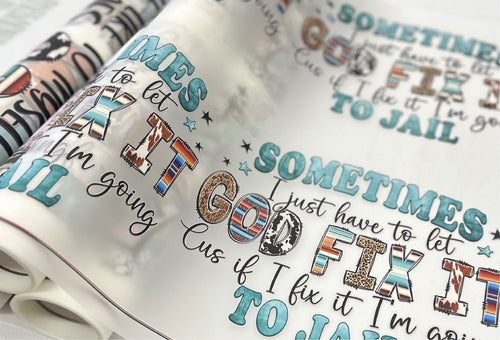 SOMETIMES
I just have to let
GOD FIX IT
Cus if I fix it I'm
TO JAIL
SOMETIMES
to let
FIX IT
I'm going
JAIL
SOMETIMES
I just have to let
GOD FIX IT
Cus if I fix it I'm going
TO JAIL